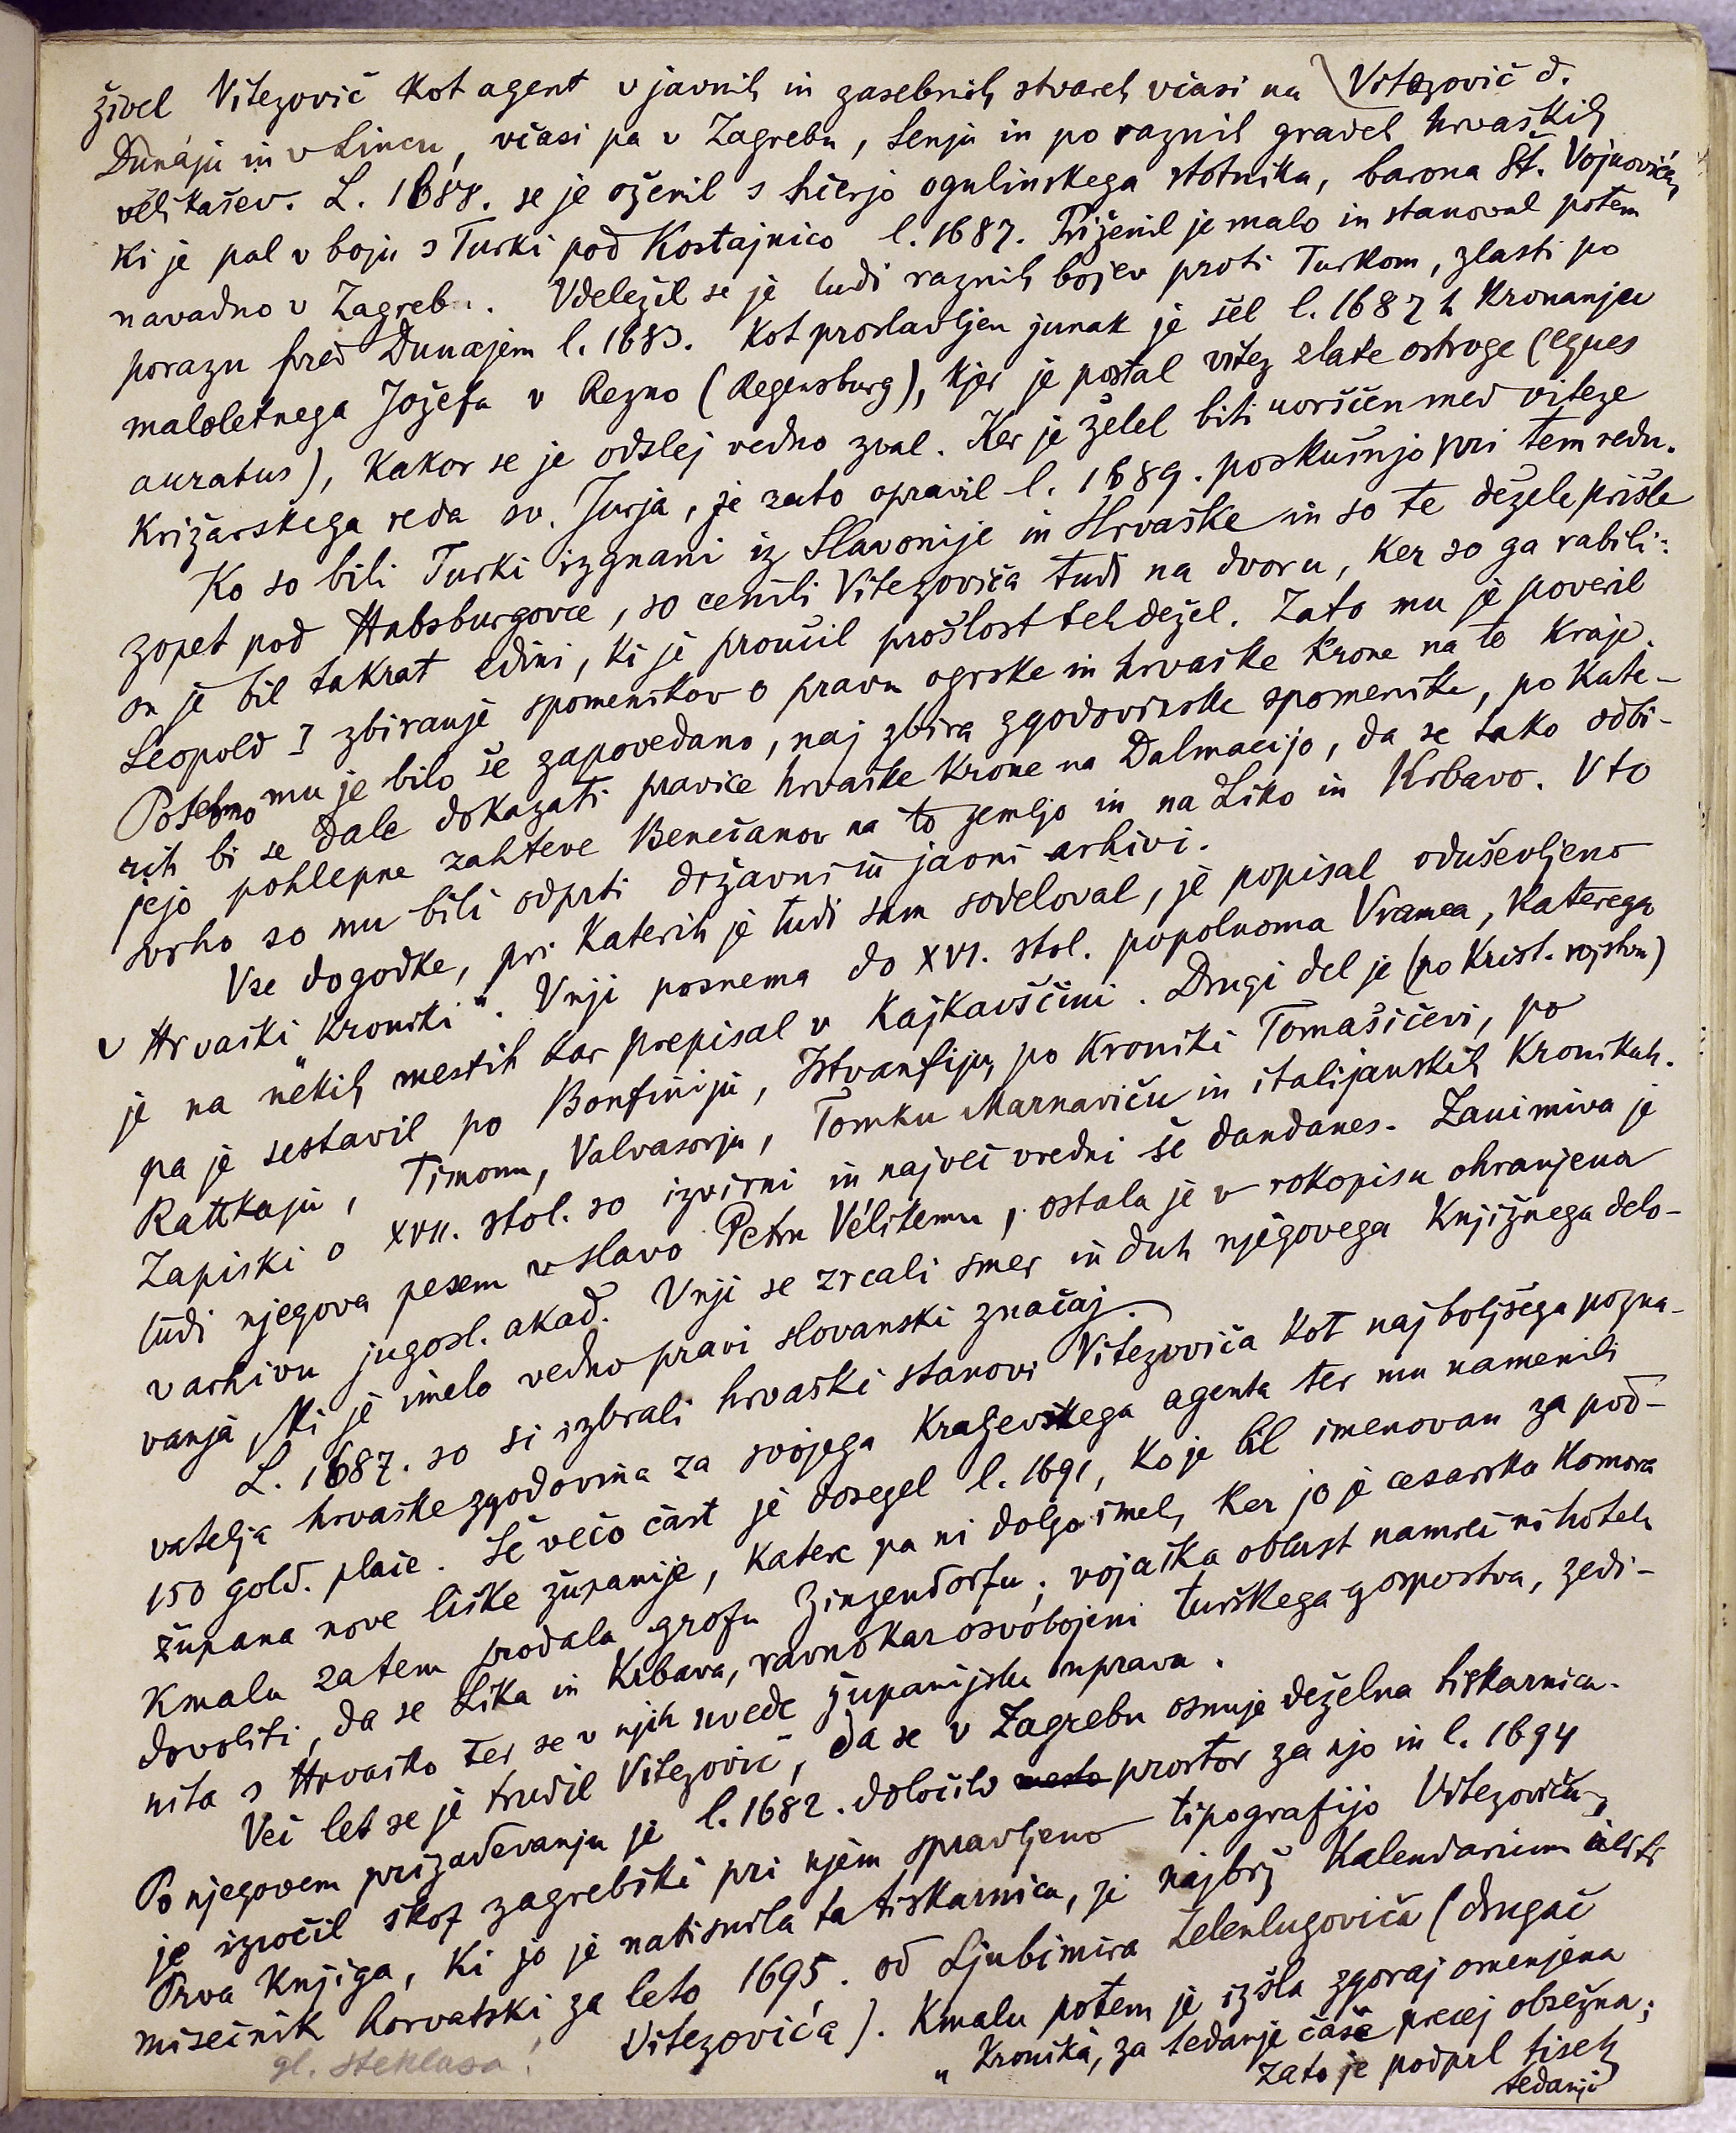 Vitezović d.
živel Vitezović kot agent v javnih in zasebnih stvareh včasi na
Dunaju in v Lincu, včasi pa v Zagrebu, Senju in po raznih gradeh hrvaških
velikašev. L. 1688. se je oženil s hčerjo ogulinskega stotnika, barona St. Vojnovića,
ki je pal v boju s Turki pod Kostajnico l. 1687. Priženil je malo in stanoval potem
navadno v Zagrebu. Vdeležil se je tudi raznih bojev proti Turkom, zlasti po
porazu pred Dunajem l. 1683. Kot proslavljen junak je šel l. 1687 h kronanju
maloletnega Jožefa v Rezno (Regensburg), kjer je postal vitez zlate ostroge (eques
auratus), kakor se je odslej vedno zval. Ker je želel biti uvrščen med viteze
križarskega reda sv. Jurja, je zato opravil l. 1689. poskušnjo pri tem redu.
Ko so bili Turki izgnani iz Slavonije in Hrvaške in so te dežele prišle
zopet pod Habsburgovce, so cenili Vitezovića tudi na dvoru, ker so ga rabili:
on je bil takrat edini, ki je proučil prošlost teh dežel. Zato mu je poveril
Leopold I zbiranje spomenikov o pravu ogrske in hrvaške krone na te kraje.
Posebno mu je bilo še zapovedano, naj zbira zgodovinske spomenike, po kate-
rih bi se dale dokazati pravice hrvaške krone na Dalmacijo, da se tako odbi-
jejo pohlepne zahteve Benečanov na to zemljo in na Liko in Krbavo. V to
svrho so mu bili odprti državni in javni arhivi.
Vse dogodke, pri katerih je tudi sam sodeloval, je popisal oduševljeno
v Hrvaški „kroniki“. V nji posnema do XVI. stol. popolnoma Vramca, katerega
je na nekih mestih kar prepisal v kajkavščini. Drugi del je (po Krist. rojstvu)
pa je sestavil po Bonfiniju, Istvanfiju, po kroniki Tomašićevi, po
Rattkaju, Timonu, Valvasorju, Tomku Marnaviću in italijanskih kronikah.
Zapiski o XVII. stol. so izvirni in največ vredni še dandanes. Zanimiva je
tudi njegova pesem v slavo Petru Vélikemu, ostala je v rokopisu ohranjena
v arhivu jugosl. akad. V nji se zrcali smer in duh njegovega književnega delo-
vanja, ki je imelo vedno pravi slovanski značaj.
L. 1687. so si izbrali hrvaški stanovi Vitezovića kot najboljšega pozna-
vatelja hrvaške zgodovina za svojega kraljevskega agenta ter mu namenili
150 gold. plače. Še večo čast je dosegel l. 1691, ko je bil imenovan za pod-
župana nove liške županije, katere pa ni dolgo imel, ker jo je cesarska komora
kmalu zatem prodala grofu Zinzendorfu; vojaška oblast namreč ni hotela
dovoliti, da se Lika in Krbava, ravnokar osvobojeni turškega gospostva, zedi-
nita s Hrvaško ter se v njih uvede županijska uprava.
Več let se je trudil Vitezović, da se v Zagrebu osnuje deželna tiskarnica.
Po njegovem prizadevanju je l. 1682. določilo mesto prostor za njo in l. 1694
je izročil škof zagrebški pri njem spravljeno tipografijo Vitezoviću.
Prva knjiga, ki jo je natisnila ta tiskarnica, je najbrž Kalendarium iliti
misečnik horvatski za leto 1695. od Ljubimira Zelenlugovića (drugač
Vitezovića). Kmalu potem je izšla zgoraj omenjena
„Kronika, za tedanje čase precej obsežna;
zato je podprl tisek
tedanji
gl. Steklasa!